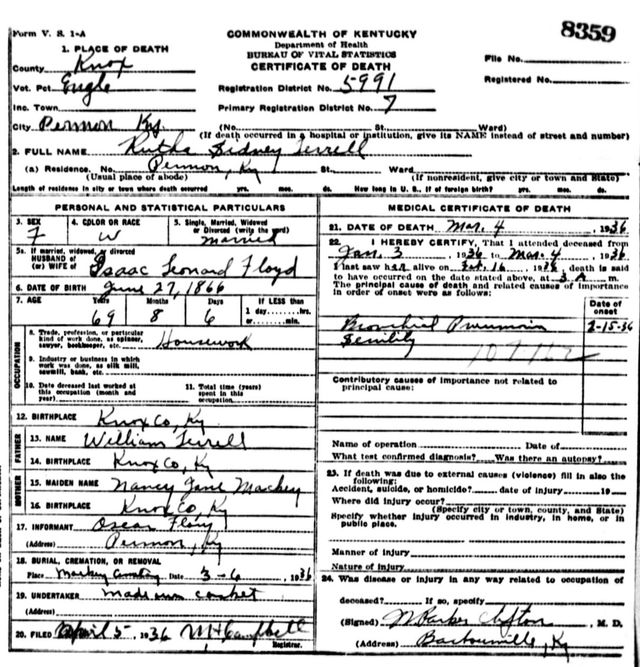 8359
Form V. S. 1-A
COMMONWEALTH OF KENTUCKY
Department of Health
BUREAU OF VITAL STATISTICS
CERTIFICATE OF DEATH
1. PLACE OF DEATH
County Knox
Vot. Pct Engle
Inc. Town
City Permon Ky
Registration District No. 5991
Primary Registration District No. 7
File No.
Registered No.
(No. St. Ward)
(If death occurred in a hospital or institution, give its NAME instead of street and number)
2. FULL NAME Sidney Terrell
(a) Residence. No. Permon, Ky St. Ward
(Usual place of abode) (If nonresident, give city or town and State)
Length of residence in city or town where death occurred yrs. mos. ds. How long in U. S., if of foreign birth? yrs. mos. ds.
PERSONAL AND STATISTICAL PARTICULARS
3. SEX F
4. COLOR OR RACE W
5. Single, Married, Widowed or Divorced (write the word) married
5a. If married, widowed, or divorced
HUSBAND of
(or) WIFE of Isaac Leonard Floyd
6. DATE OF BIRTH June 27, 1866
7. AGE Years Months Days If LESS than
69 8 6 1 day, hrs.
or min.
OCCUPATION
8. Trade, profession, or particular kind of work done, as spinner, sawyer, bookkeeper, etc. Housework
9. Industry or business in which work was done, as silk mill, sawmill, bank, etc.
10. Date deceased last worked at this occupation (month and year)
11. Total time (years) spent in this occupation
12. BIRTHPLACE Knox Co, Ky
FATHER
13. NAME William Terrell
14. BIRTHPLACE Knox Co, Ky
MOTHER
15. MAIDEN NAME Nancy Jane Mackey
16. BIRTHPLACE Knox Co, Ky
17. INFORMANT Oscar
(Address) Permon, Ky
18. BURIAL, CREMATION, OR REMOVAL
Place Date 3-6, 1936
19. UNDERTAKER made own casket
(Address)
20. FILED April 5, 1936 M H Campbell
Registrar.
MEDICAL CERTIFICATE OF DEATH
21. DATE OF DEATH Mar. 4, 1936
22. I HEREBY CERTIFY, That I attended deceased from
Jan. 3 1936 to Mar. 4, 1936.
I last saw her alive on Feb. 16, 1936, death is said
to have occurred on the date stated above, at 3 A
The principal cause of death and related causes of importance
in order of onset were as follows:
Date of onset
Bronchial Pneumonia 2-15-36
Senility
Contributory causes of importance not related to
principal cause:
Name of operation Date of
What test confirmed diagnosis? Was there an autopsy?
23. If death was due to external causes (violence) fill in also the
following:
Accident, suicide, or homicide? date of injury 19
Where did injury occur?
(Specify city or town, county, and State)
Specify whether injury occurred in industry, in home, or in
public place.
Manner of injury
Nature of injury
24. Was disease or injury in any way related to occupation of
deceased? If so, specify
(Signed) Parker, M. D.
(Address) Barbourville, Ky